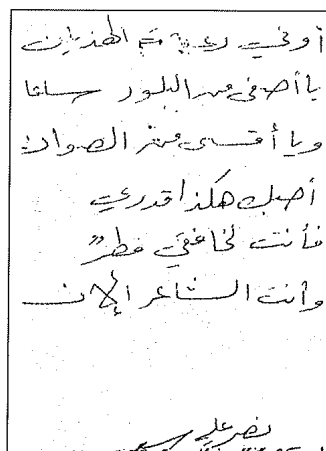 أو في رعشة الهذيان
يا أصفى من البلور
ويا أقسى من الصوان
أحبك هكذا قدري
فأنت لخافقي مطر
وأنت الشاعر الإنسان
نصر علي سعيد